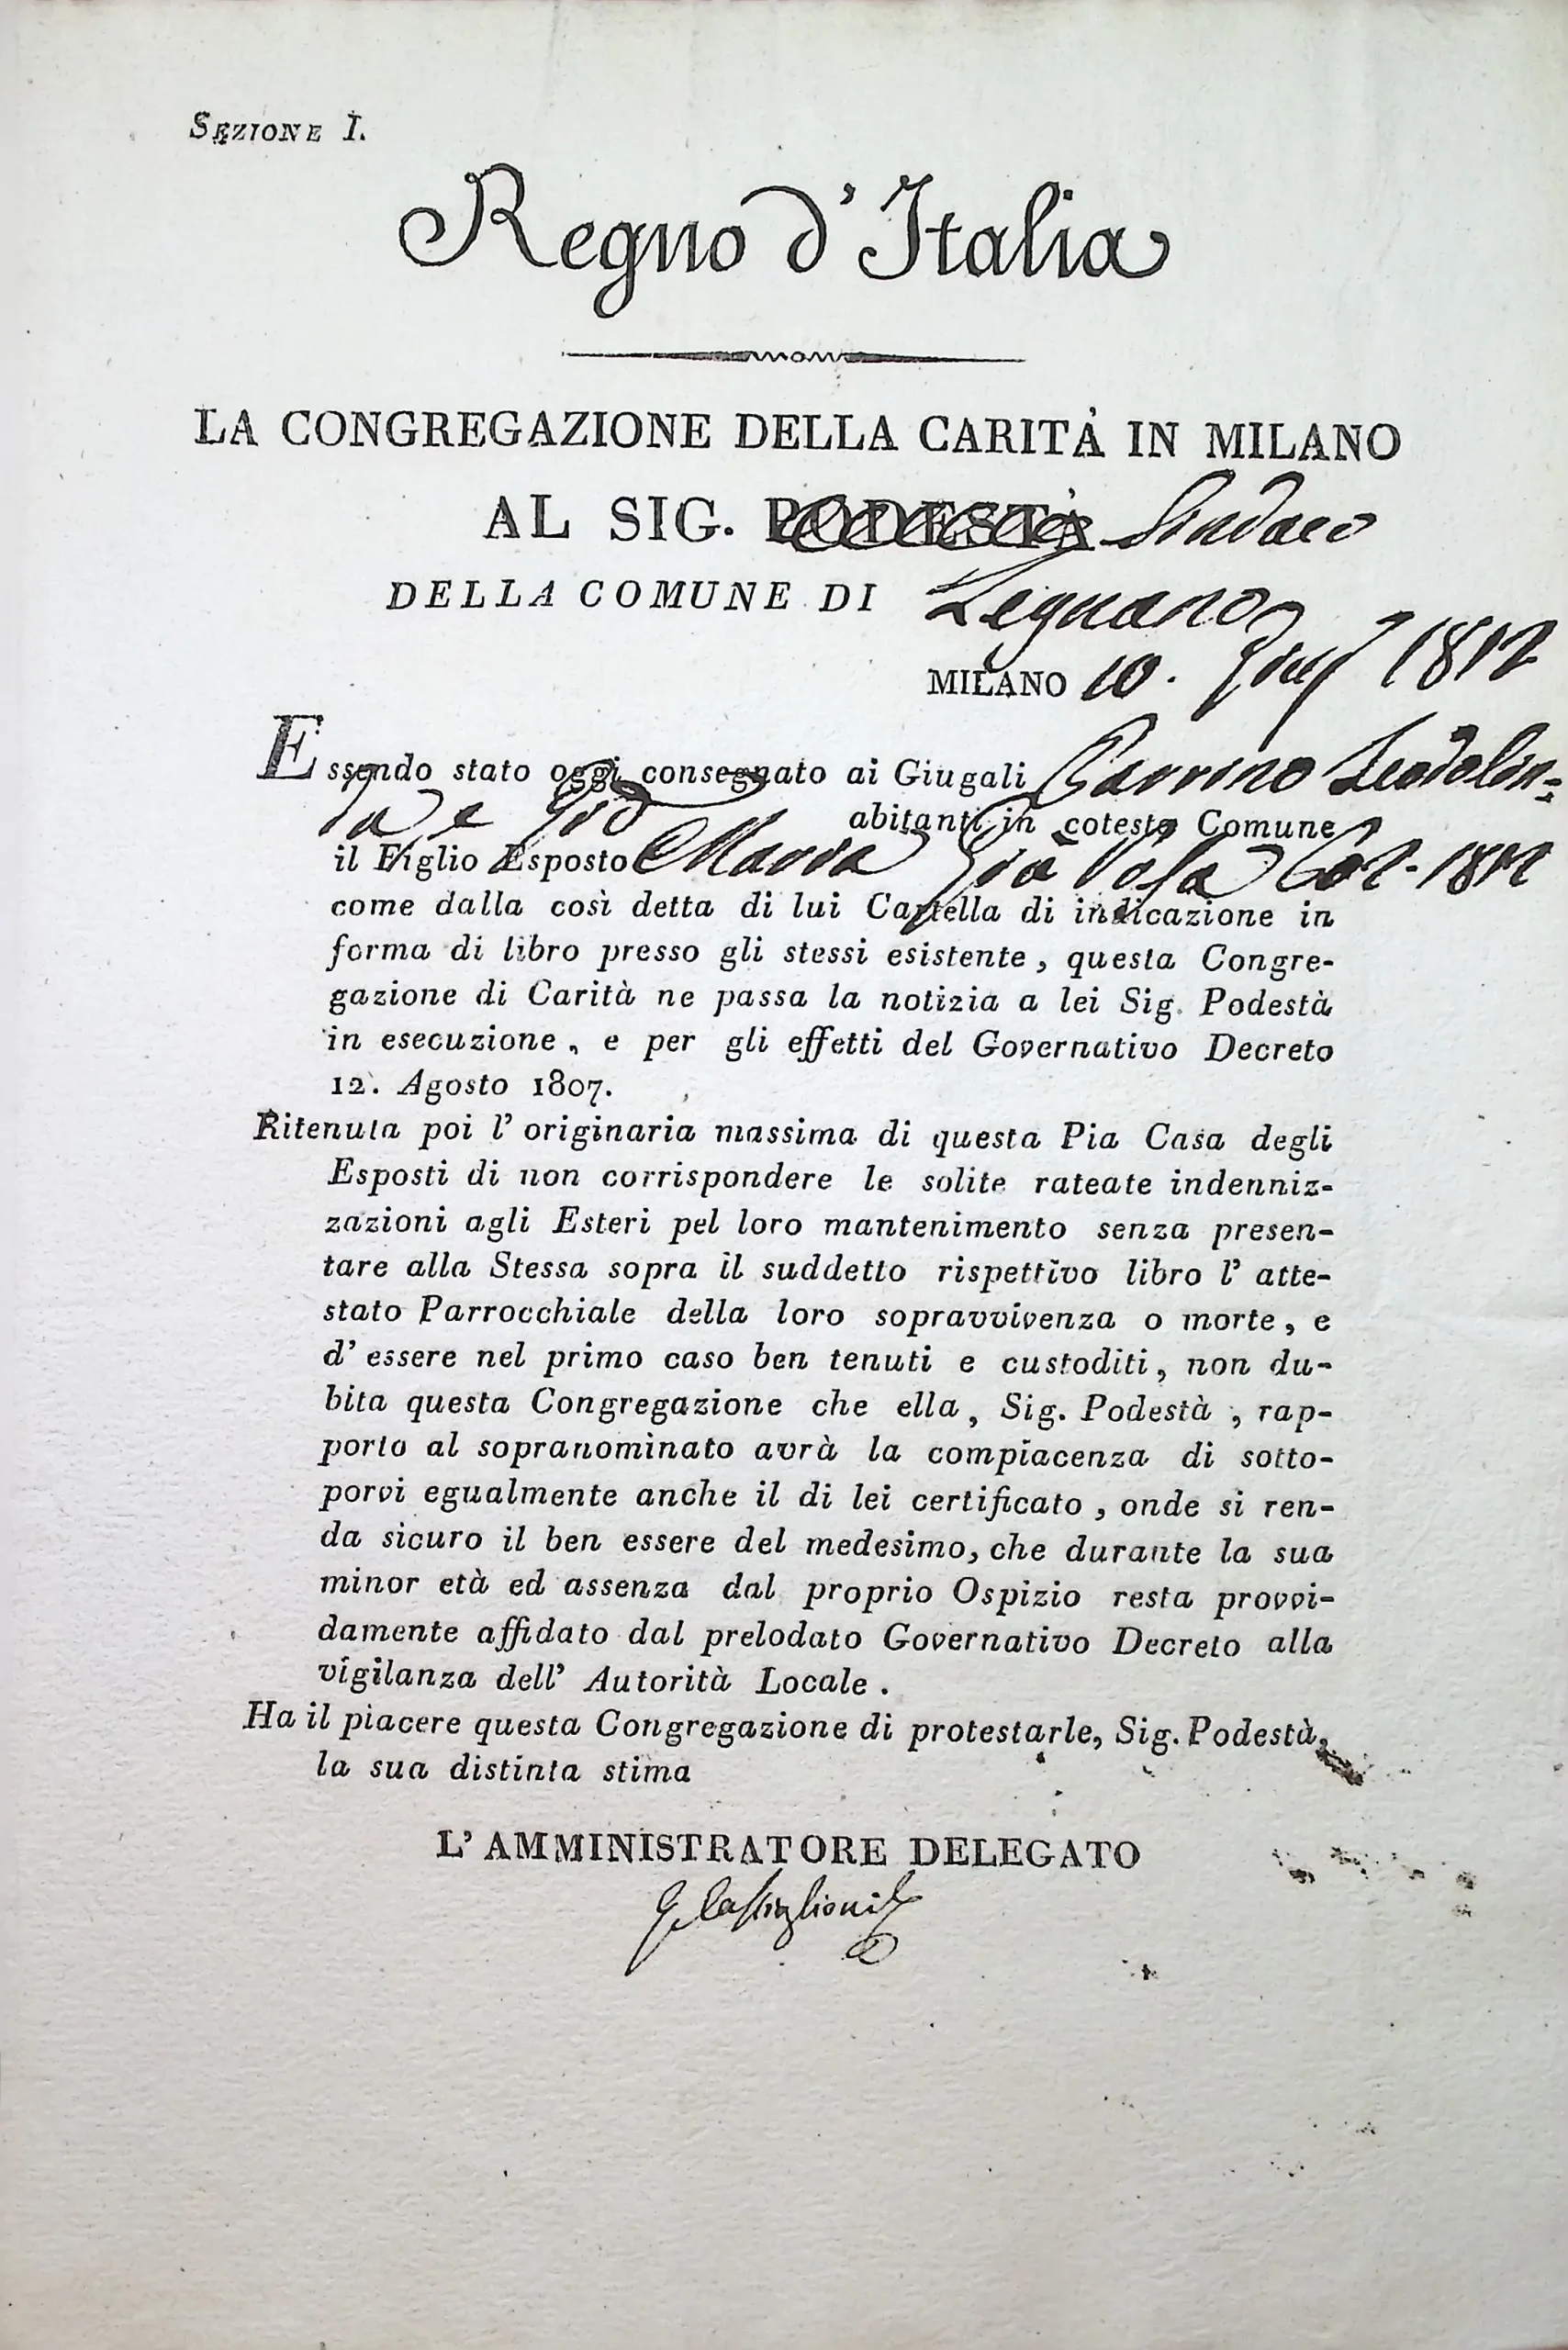 SEZIONE I.
Regno d'Italia
LA CONGREGAZIONE DELLA CARITÀ IN MILANO
AL SIG. PODESTÀ Sindaco
DELLA COMUNE DI Legnano
MILANO 10. 1812
Essendo stato oggi consegnato ai Giugali
abitanti in cotesta Comune
il Figlio Esposto Maria 1812
come dalla così detta di lui Cartella di indicazione in
forma di libro presso gli stessi esistente, questa Congre-
gazione di Carità ne passa la notizia a lei Sig. Podestà
in esecuzione, e per gli effetti del Governativo Decreto
12. Agosto 1807.
Ritenuta poi l'originaria massima di questa Pia Casa degli
Esposti di non corrispondere le solite rateate indenniz-
zazioni agli Esteri pel loro mantenimento senza presen-
tare alla Stessa sopra il suddetto rispettivo libro l'atte-
stato Parrocchiale della loro sopravvivenza o morte, e
d'essere nel primo caso ben tenuti e custoditi, non du-
bita questa Congregazione che ella, Sig. Podestà, rap-
porto al sopranominato avrà la compiacenza di sotto-
porvi egualmente anche il di lei certificato, onde si ren-
da sicuro il ben essere del medesimo, che durante la sua
minor età ed assenza dal proprio Ospizio resta provvi-
damente affidato dal prelodato Governativo Decreto alla
vigilanza dell'Autorità Locale.
Ha il piacere questa Congregazione di protestarle, Sig. Podestà,
la sua distinta stima
L'AMMINISTRATORE DELEGATO
Castiglioni